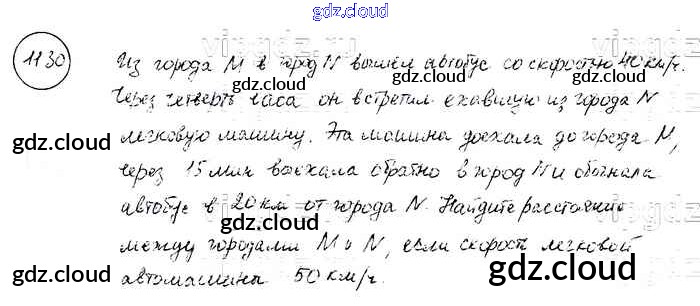 gdz.cloud
1130
Из города M в город N вышел автобус со скоростью 40 км/ч.
gdz.cloud
Через четверть часа он встретил ехавшую из города N
gdz.cloud
легковую машину. Эта машина доехала до города M,
gdz.cloud
через 15 мин выехала обратно в город N и обогнала
gdz.cloud
автобус в 20 км от города N. Найдите расстояние
gdz.cloud
между городами M и N, если скорость легковой
gdz.cloud
автомашины 50 км/ч.
gdz.cloud